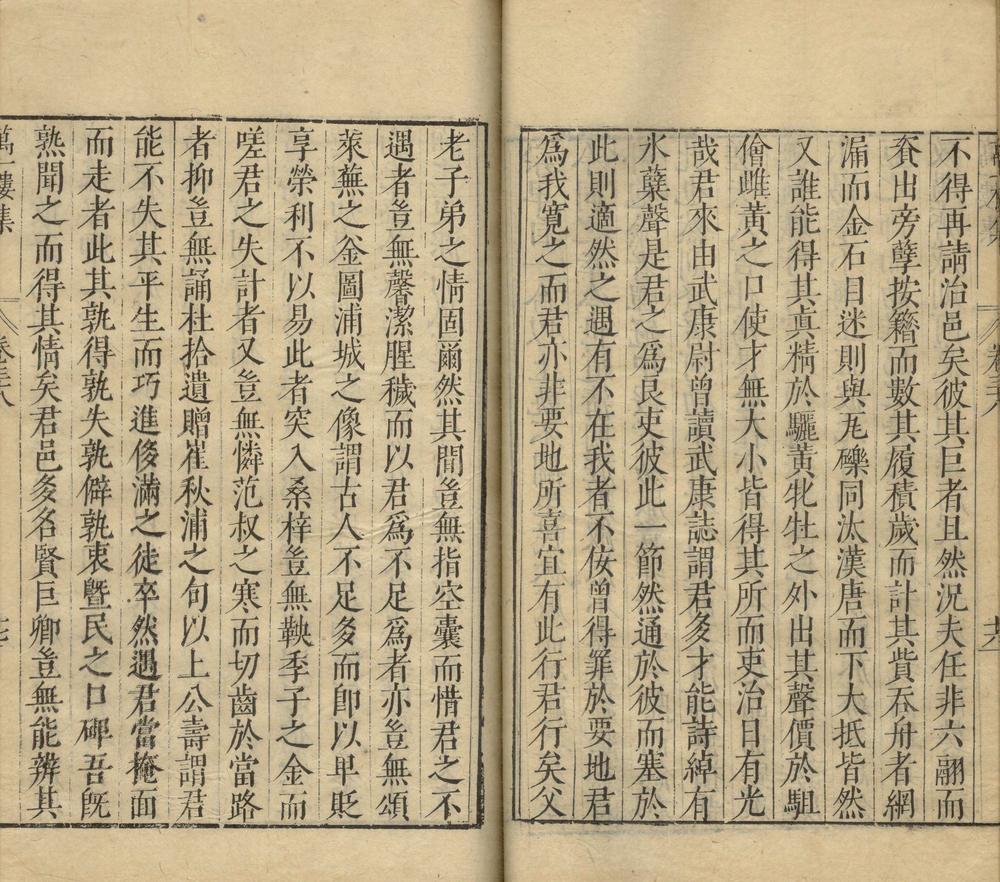 不得再請治邑矣彼其巨者且然況夫任非六翮而
賚出旁孽按籍而數其履積歲而計其貲吞舟者網
漏而金石目迷則與瓦礫同汰漢唐而下大抵皆然
又誰能得其眞精於驪黃牝牡之外出其聲價於駔
儈雌黃之口使才無大小皆得其所而吏治日有光
哉君來由武康尉曾讀武康誌謂君多才能詩綽有
氷蘗聲是君之為良吏彼此一節然通於彼而塞於
此則適然之遇有不在我者不佞曾得罪於要地君
為我寛之而君亦非要地所喜宜有此行君行矣父
老子弟之情固爾然其間豈無指空囊而惜君之不
遇者豈無馨潔腥穢而以君爲不足爲者亦豈無頌
萊蕪之釜圖浦城之像謂古人不足多而卽以卑貶
享榮利不以易此者突入桑梓豈無鞅季子之金而
嗟君之失計者又豈無憐范叔之寒而切齒於當路
者抑豈無誦杜拾遺贈崔秋浦之句以上公壽謂君
能不失其平生而巧進倐滿之徒卒然遇君當掩面
而走者此其孰得孰失孰僻孰衷曁民之口碑吾旣
熟聞之而得其情矣君邑多名賢巨卿豈無能辨其
萬一樓集
卷三十八